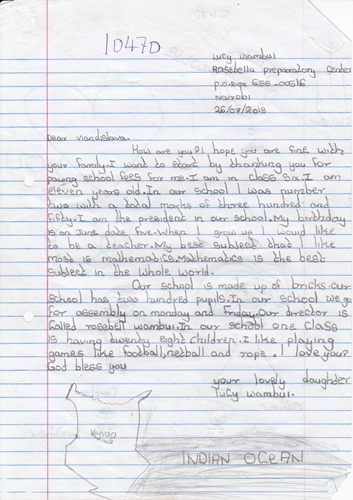 10470
Lucy Wambui
Rosebella preparatory center
P.O.Box 655-00516
Nairobi
26/07/2013
Dear Viandslava.
How are you? I hope you are fine with
your family. I want to start by thanking you for
paying school fees for me. I am in class six. I am
eleven years old. In our school I was number
two with a total marks of three hundred and
fifty. I am the president in our school. My birthday
is on June date five. When I grow up I would like
to be a teacher. My best subject that I like
most is mathematics. Mathematics is the best
subject in the whole world.
Our school is made up of bricks. Our
school has two hundred pupils. In our school we go
for assembly on monday and Friday. Our director is
called rosebell wambui. In our school one class
is having twenty eight children. I like playing
games like football, netball and rope. I love you?
God bless you
your lovely daughter
Lucy wambui.
Kenya
INDIAN OCEAN